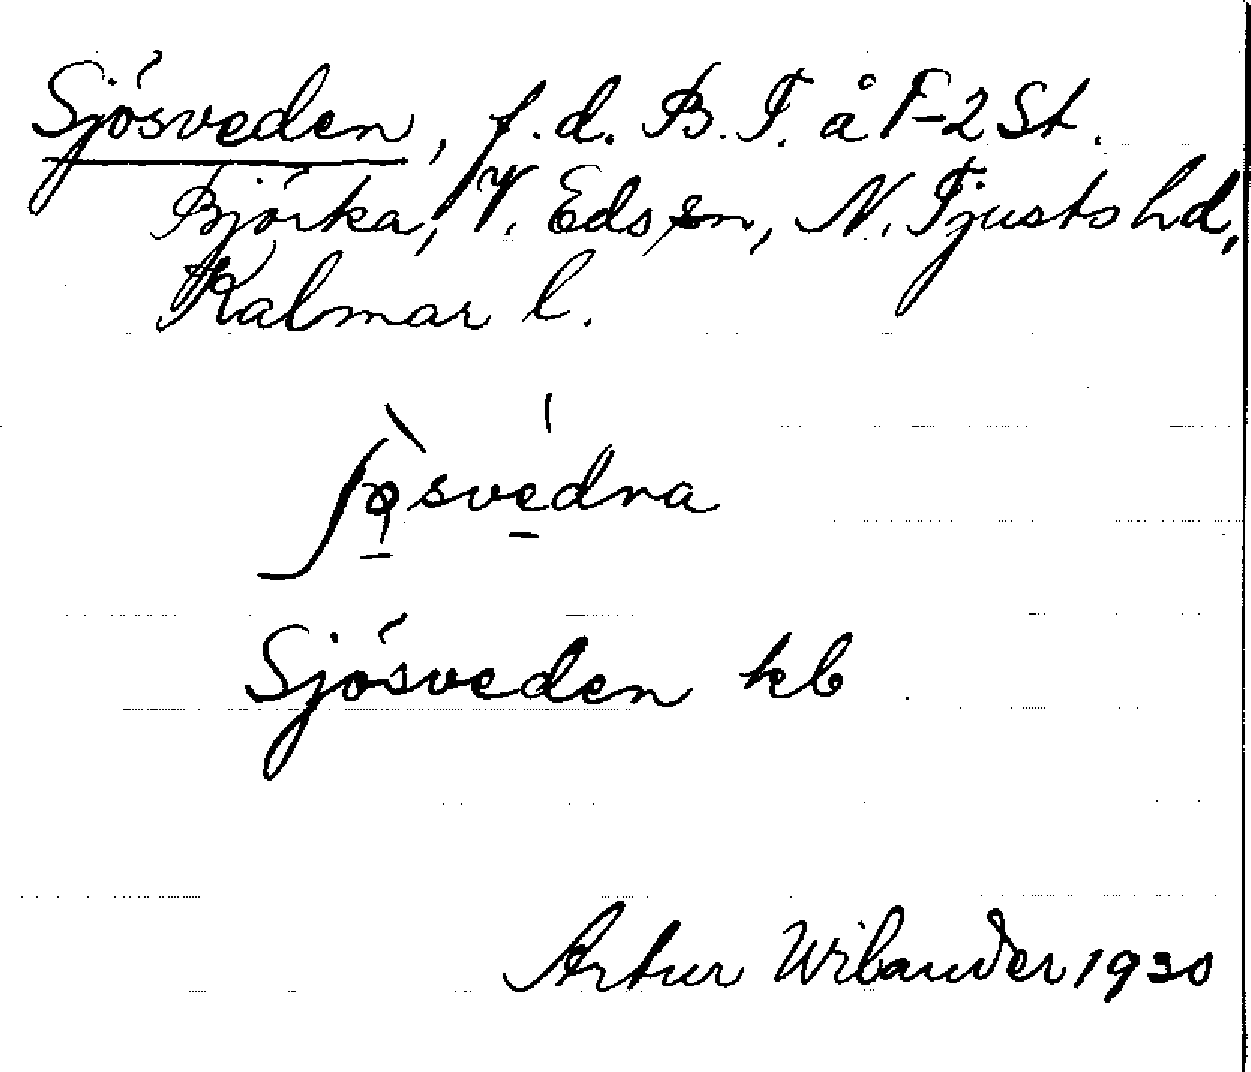 Sjösveden, f.d. B.T. å F-2 St.
Björka, V. Eds sn, N. Tjusts hd,
Kalmar l.
Sjösveden kb
Artur Wilander 1930